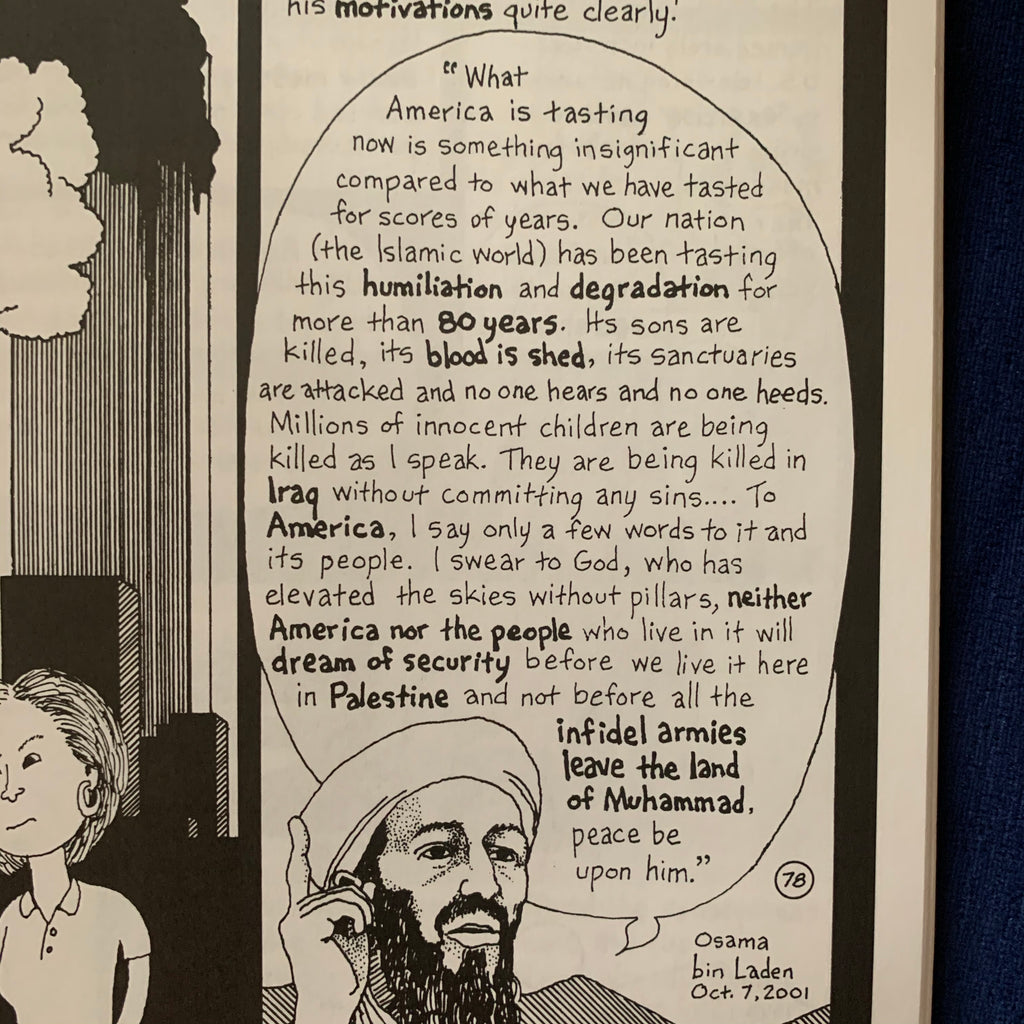 his motivations quite clearly:
"What
America is tasting
now is something insignificant
compared to what we have tasted
for scores of years. Our nation
(the Islamic world) has been tasting
this humiliation and degradation for
more than 80 years. Its sons are
killed, its blood is shed, its sanctuaries
are attacked and no one hears and no one heeds.
Millions of innocent children are being
killed as I speak. They are being killed in
Iraq without committing any sins.... To
America, I say only a few words to it and
its people. I swear to God, who has
elevated the skies without pillars, neither
America nor the people who live in it will
dream of security before we live it here
in Palestine and not before all the
infidel armies
leave the land
of Muhammad,
peace be
upon him."
78
Osama
bin Laden
Oct. 7, 2001